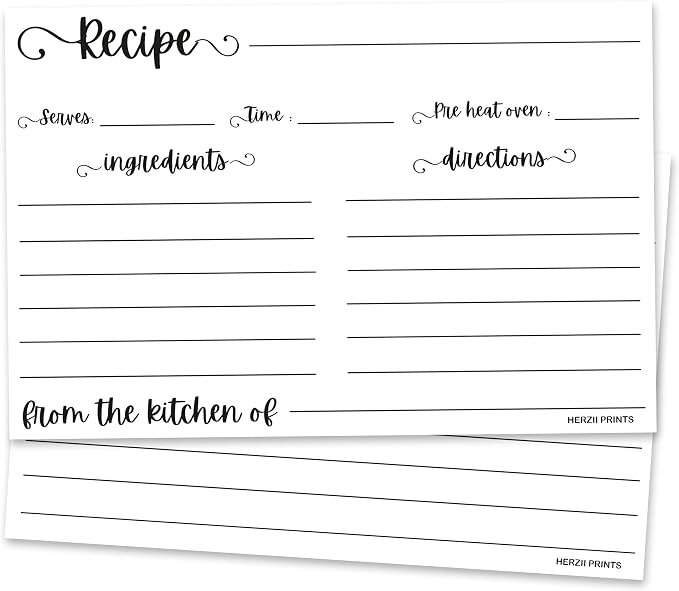 Recipe
Serves: Time : Pre heat oven :
ingredients directions
from the kitchen of
HERZII PRINTS
HERZII PRINTS